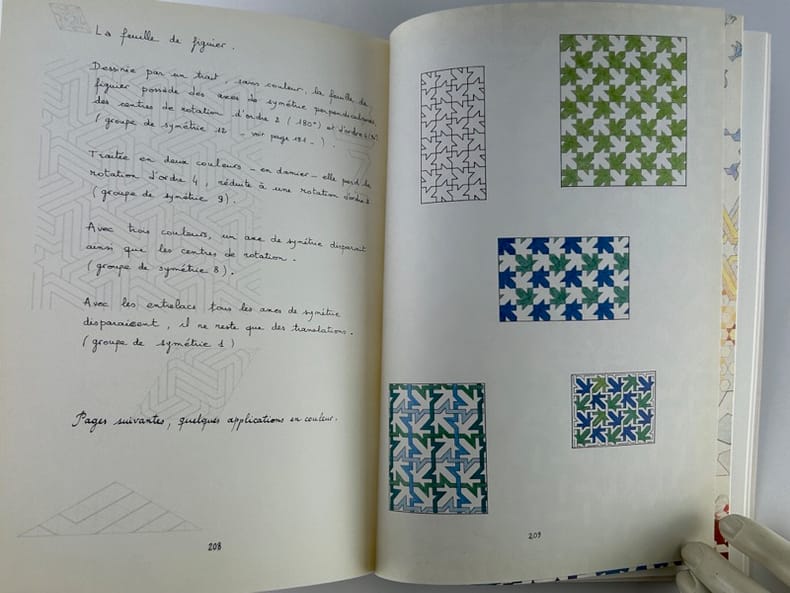 La feuille de figuier.
Dessinée par un trait, sans couleur, la feuille de
figuier possède des axes de symétrie perpendiculaires
des centres de rotation d'ordre 2 (180°) et d'ordre 4
(groupe de symétrie 12 - voir page 191 - ).
Traitée en deux couleurs - en damier - elle perd la
rotation d'ordre 4, réduite à une rotation d'ordre 2
(groupe de symétrie 9).
Avec trois couleurs, un axe de symétrie disparait
ainsi que les centres de rotation.
(groupe de symétrie 8).
Avec les entrelacs tous les axes de symétrie
disparaissent, il ne reste que des translations.
(groupe de symétrie 1)
Pages suivantes, quelques applications en couleur.
208
209